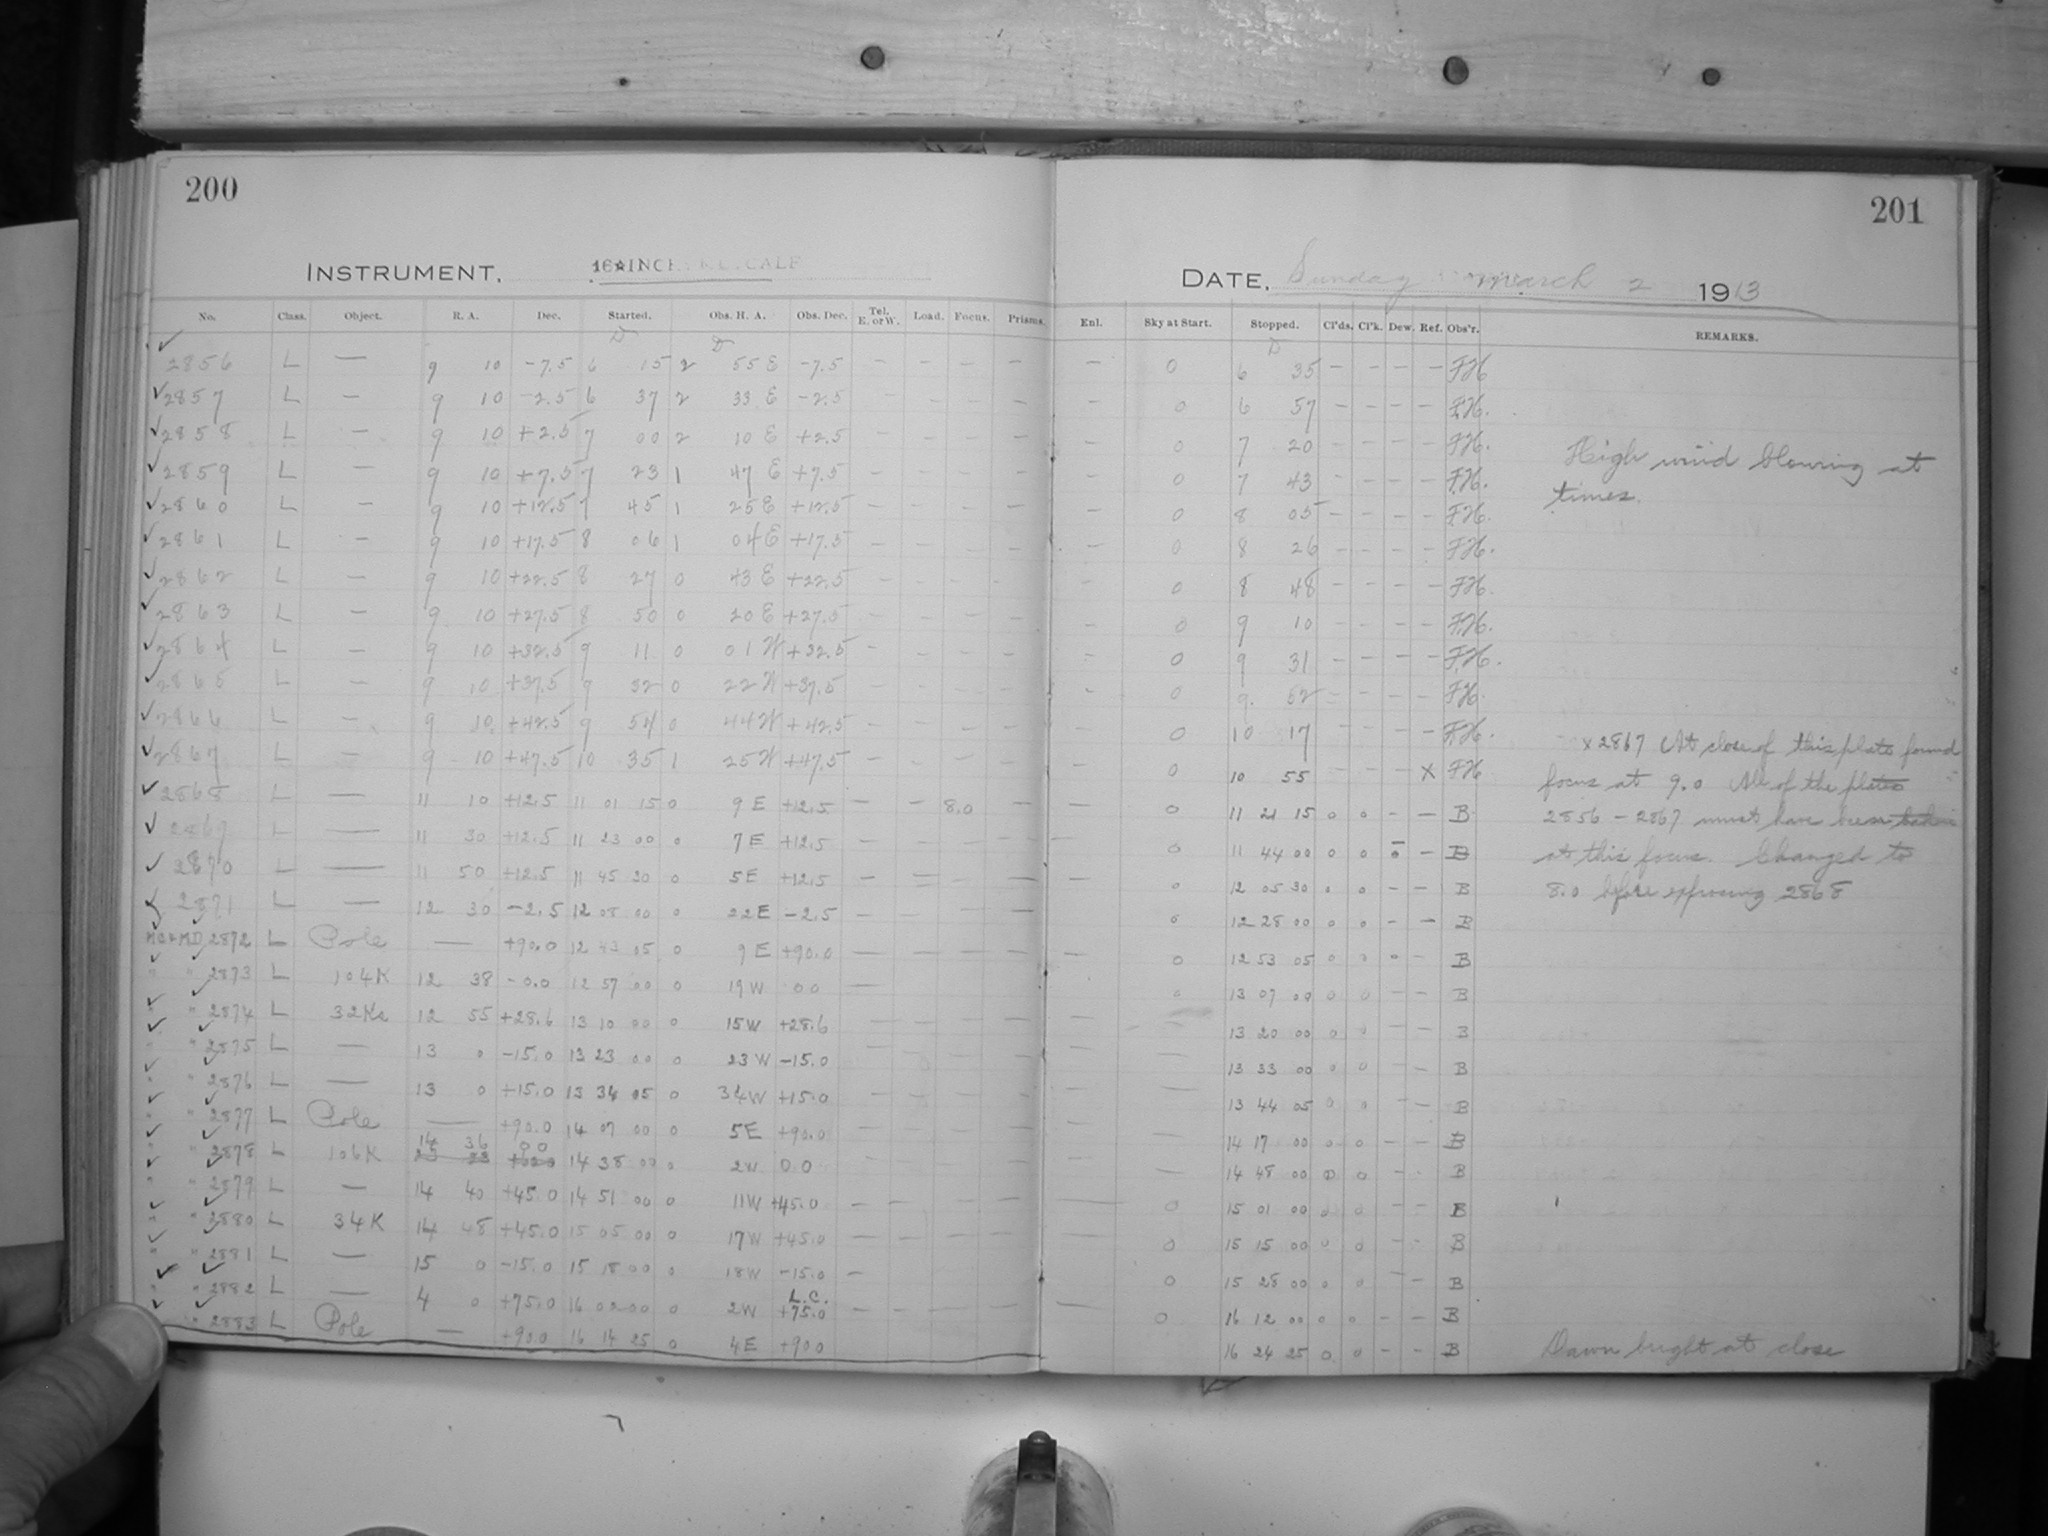 200
201
INSTRUMENT, 16 INCH METCALF
DATE, Sunday March 2 1913
No. Class. Object. R. A. Dec. Started. Obs. H. A. Obs. Dec. Tel. E. or W. Load. Focus. Prisms. Enl. Sky at Start. Stopped. Cl'ds. Cl'k. Dew. Ref. Obs'r. REMARKS.
✓ 2856 L — 9 10 -7.5 6 15 2 55 E -7.5 — — — — — 0 6 35 — — — — F.H.
✓ 2857 L — 9 10 -2.5 6 37 2 33 E -2.5 — — — — — 0 6 57 — — — — F.H.
✓ 2858 L — 9 10 +2.5 7 00 2 10 E +2.5 — — — — — 0 7 20 — — — — F.H.
High wind blowing at
✓ 2859 L — 9 10 +7.5 7 23 1 47 E +7.5 — — — — — 0 7 43 — — — — F.H.
times.
✓ 2860 L — 9 10 +12.5 7 45 1 25 E +12.5 — — — — — 0 8 05 — — — — F.H.
✓ 2861 L — 9 10 +17.5 8 06 1 04 E +17.5 — — — — — 0 8 26 — — — — F.H.
✓ 2862 L — 9 10 +22.5 8 27 0 43 E +22.5 — — — — — 0 8 48 — — — — F.H.
✓ 2863 L — 9 10 +27.5 8 50 0 20 E +27.5 — — — — — 0 9 10 — — — — F.H.
✓ 2864 L — 9 10 +32.5 9 11 0 01 W +32.5 — — — — — 0 9 31 — — — — F.H.
✓ 2865 L — 9 10 +37.5 9 32 0 22 W +37.5 — — — — — 0 9 52 — — — — F.H.
✓ 2866 L — 9 10 +42.5 9 54 0 44 W +42.5 — — — — — 0 10 17 — — — — F.H.
x 2867 At close of this plate found
✓ 2867 L — 9 10 +47.5 10 35 1 25 W +47.5 — — — — — 0 10 55 — — — X F.H.
focus at 9.0 All of the plates
✓ 2868 L — 11 10 +12.5 11 01 15 0 9 E +12.5 — — 8.0 — — 0 11 21 15 0 0 — — B
2856 - 2867 must have been taken
✓ 2869 L — 11 30 +12.5 11 23 00 0 7 E +12.5 — — — — — 0 11 44 00 0 0 0 — B
at this focus. Changed to
✓ 2870 L — 11 50 +12.5 11 45 30 0 5 E +12.5 — — — — — 0 12 05 30 0 0 — — B
8.0 before exposing 2868
✓ 2871 L — 12 30 -2.5 12 08 00 0 22 E -2.5 — — — 0 12 28 00 0 0 — — B
MC & MD 2872 L Pole — +90.0 12 43 05 0 9 E +90.0 — — — — — 0 12 53 05 0 0 0 — B
" " 2873 L 104K 12 38 -0.0 12 57 00 0 19 W 0 0 — 0 13 07 00 0 0 — — B
" " 2874 L 12 55 +28.6 13 10 00 0 15 W +28.6 — — — — — 13 20 00 0 0 — — B
" " 2875 L — 13 0 -15.0 13 23 00 0 23 W -15.0 — 13 33 00 0 0 — — B
" " 2876 L — 13 0 +15.0 13 34 05 0 34 W +15.0 — — — — — 13 44 05 0 0 — — B
" " 2877 L Pole — +90.0 14 07 00 0 5 E +90.0 — — — — — 14 17 00 0 0 — — B
" " 2878 L 106K 14 36 0 0 14 38 00 0 2 W 0.0 — 14 48 00 0 0 — — B
" " 2879 L — 14 40 +45.0 14 51 00 0 11 W +45.0 — — — — — 0 15 01 00 0 0 — — B
" " 2880 L 34K 14 48 +45.0 15 05 00 0 17 W +45.0 — — — — — 0 15 15 00 0 0 — — B
" " 2881 L — 15 0 -15.0 15 18 00 0 18 W -15.0 — 0 15 28 00 0 0 — — B
L.C.
" " 2882 L — 4 0 +75.0 16 02 00 0 2 W +75.0 — — — — — 0 16 12 00 0 0 — — B
" " 2883 L Pole — +90.0 16 14 25 0 4 E +90.0 16 24 25 0 0 — — B Dawn bright at close